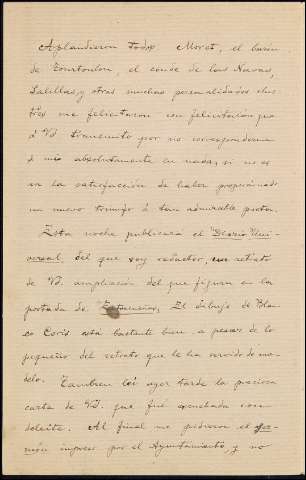 Aplaudieron todos Moret, el barón
de Tourtoulon, el conde de las Navas,
Salillas y otras muchas personalidades ilus-
tres me felicitaron con felicitación que
á Vd transmito por no corresponderme
á mí absolutamente en nada, si no es
en la satisfacción de haber proporcionado
un nuevo triunfo á tan admirable poeta.
Esta noche publicará el "Diario Uni-
versal, del que soy redactor, un retrato
de Vd. ampliación del que figura en la
portada de "Extremeñas, El dibujo de Blan-
co Coris está bastante bien a pesar de lo
pequeño del retrato que le ha servido de mo-
delo. Tambien leí ayer tarde la preciosa
carta de Vd. que fué escuchada con
deleite. Al final me pidieron el
impreso por el Ayuntamiento, y no